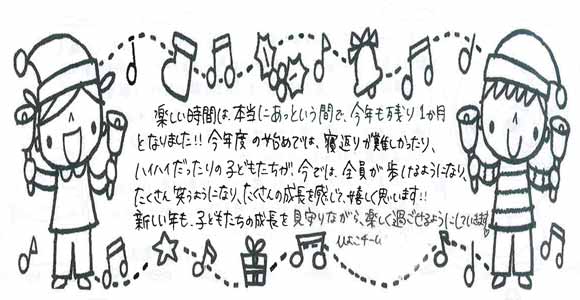 楽しい時間は、本当にあっという間で、今年も残り1か月
となりました!!今年度の始めでは、寝返りが難しかったり、
ハイハイだったりの子どもたちが、今では、全員が歩けるようになり、
たくさん笑うようになり、たくさんの成長を感じて、嬉しく思います!!
新しい年も、子どもたちの成長を見守りながら、楽しく過ごせるようにしていきます。
ひよこチーム